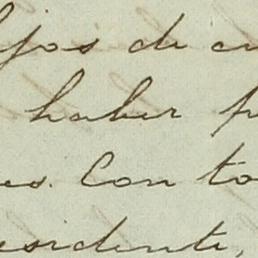 jos de
haber
es. Con to
sidente,